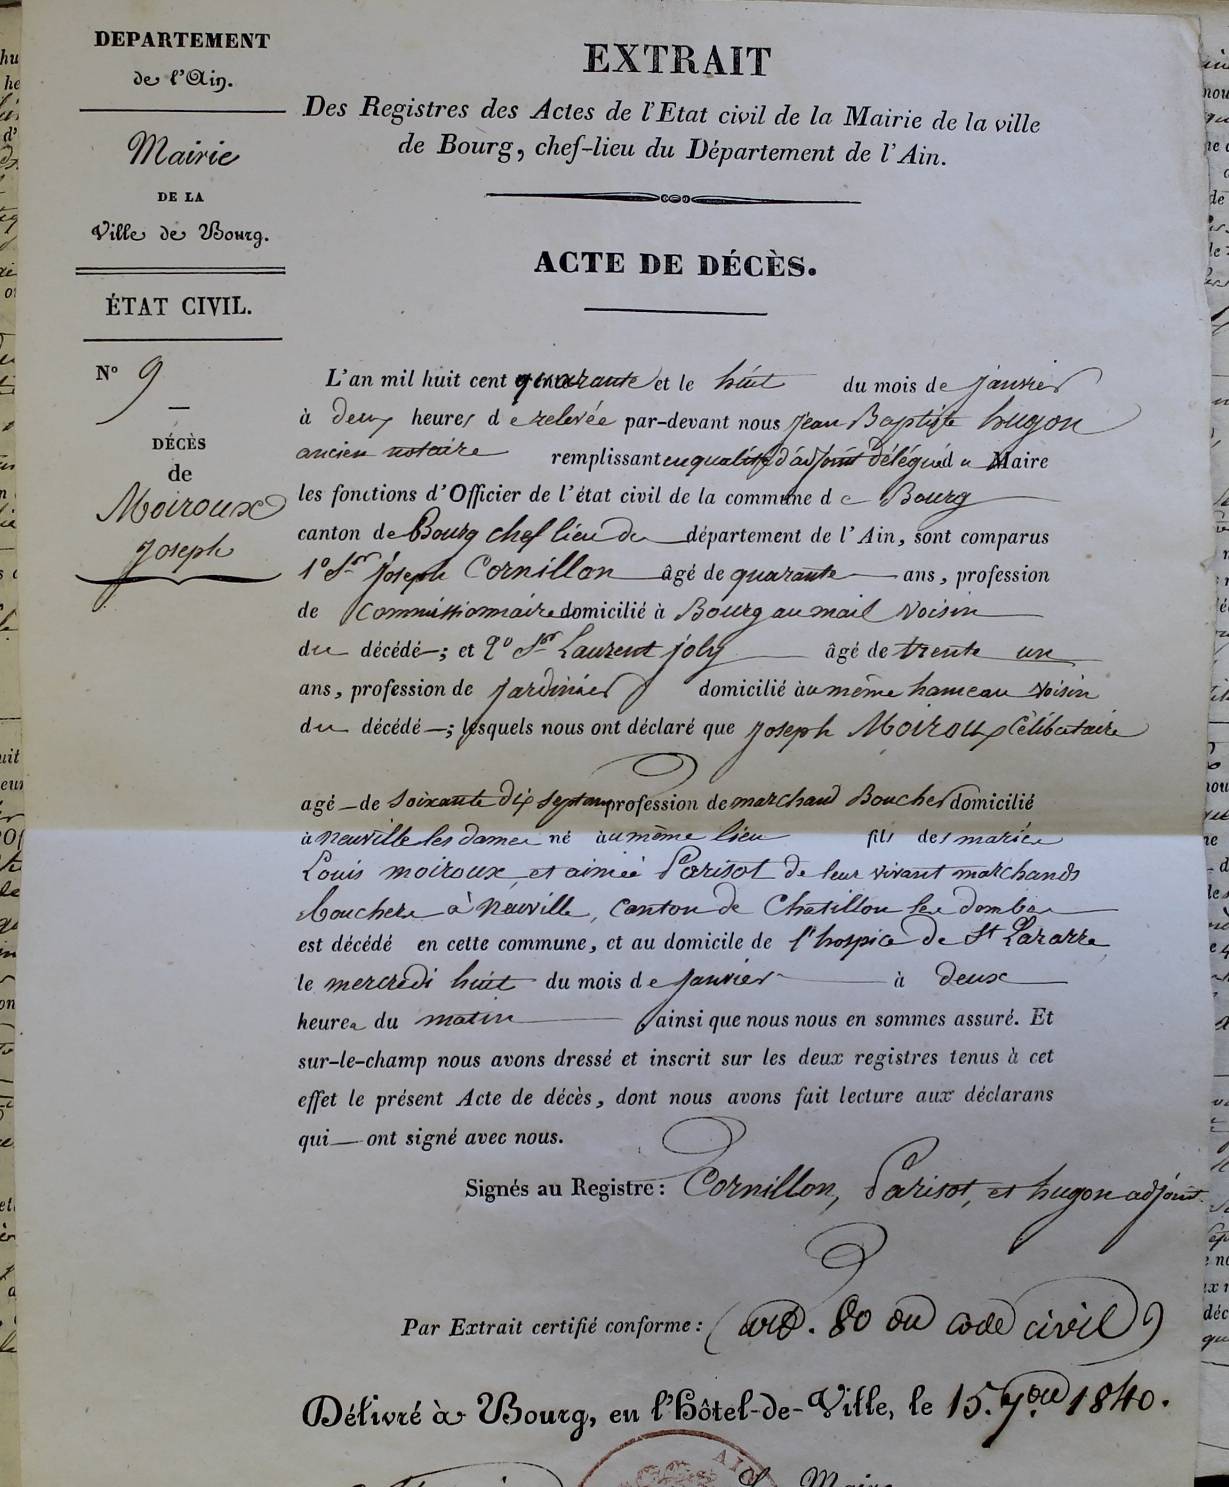 DEPARTEMENT
de l'Ain.
Mairie
DE LA
Ville de Bourg.
ÉTAT CIVIL.
N° 9
DÉCÈS
de
Moiroux
Joseph
EXTRAIT
Des Registres des Actes de l'Etat civil de la Mairie de la ville
de Bourg, chef-lieu du Département de l'Ain.
ACTE DE DÉCÈS.
L'an mil huit cent quarante et le huit du mois de janvier
à deux heures de relevée par-devant nous jean Baptiste hugon
ancien notaire remplissant en qualité d'adjoint délégué du Maire
les fonctions d'Officier de l'état civil de la commune de Bourg
canton de Bourg chef lieu du département de l'Ain, sont comparus
1° Sr joseph Cornillon âgé de quarante ans, profession
de Commissionnaire domicilié à Bourg au mail voisin
du décédé ; et 2° Sr Laurent joly âgé de trente un
ans, profession de jardinier domicilié au même hameau voisin
du décédé ; lesquels nous ont déclaré que joseph Moiroux Célibataire
agé de soixante dix sept ans profession de marchand Boucher domicilié
à neuville les dames né au même lieu fils des mariés
Louis moiroux, et aimée Parisot de leur vivant marchands
bouchers à Neuville, canton de Chatillon les dombes
est décédé en cette commune, et au domicile de l'hospice de St Lazarre
le mercredi huit du mois de janvier à deux
heures du matin, ainsi que nous nous en sommes assuré. Et
sur-le-champ nous avons dressé et inscrit sur les deux registres tenus à cet
effet le présent Acte de décès, dont nous avons fait lecture aux déclarans
qui ont signé avec nous.
Signés au Registre : Cornillon, Parisot, et hugon adjoint.
Par Extrait certifié conforme : (art. 80 du code civil)
Délivré à Bourg, en l'Hôtel-de-Ville, le 15. 7bre 1840.
AIN
Le Maire